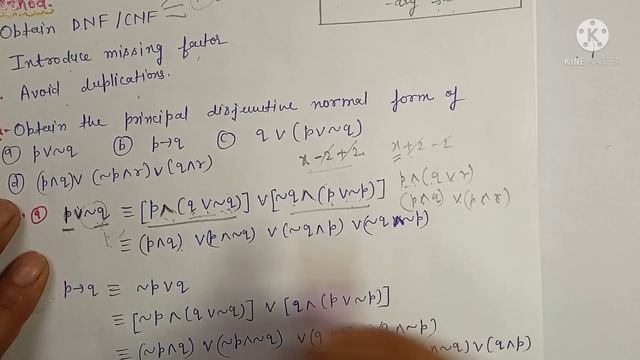 Method.
Obtain DNF/CNF
Introduce missing factor
Avoid duplications.
Obtain the principal disjunctive normal form of
(a) p∨~q (b) p→q (c) q∨(p∨~q)
(d) (p∧q)∨(~p∧r)∨(q∧r)
x-2+2 x+2-2
p∧(q∨r)
(p∧q)∨(p∧r)
(a) p∨~q ≡ [p∧(q∨~q)]∨[~q∧(p∨~p)]
≡ (p∧q)∨(p∧~q)∨(~q∧p)∨(~q∧~p)
p→q ≡ ~p∨q
≡ [~p∧(q∨~q)]∨[q∧(p∨~p)]
≡ (~p∧q)∨(~p∧~q)∨(q
∧~p)
∧~q)∨(q∧p)
KINEMASTER